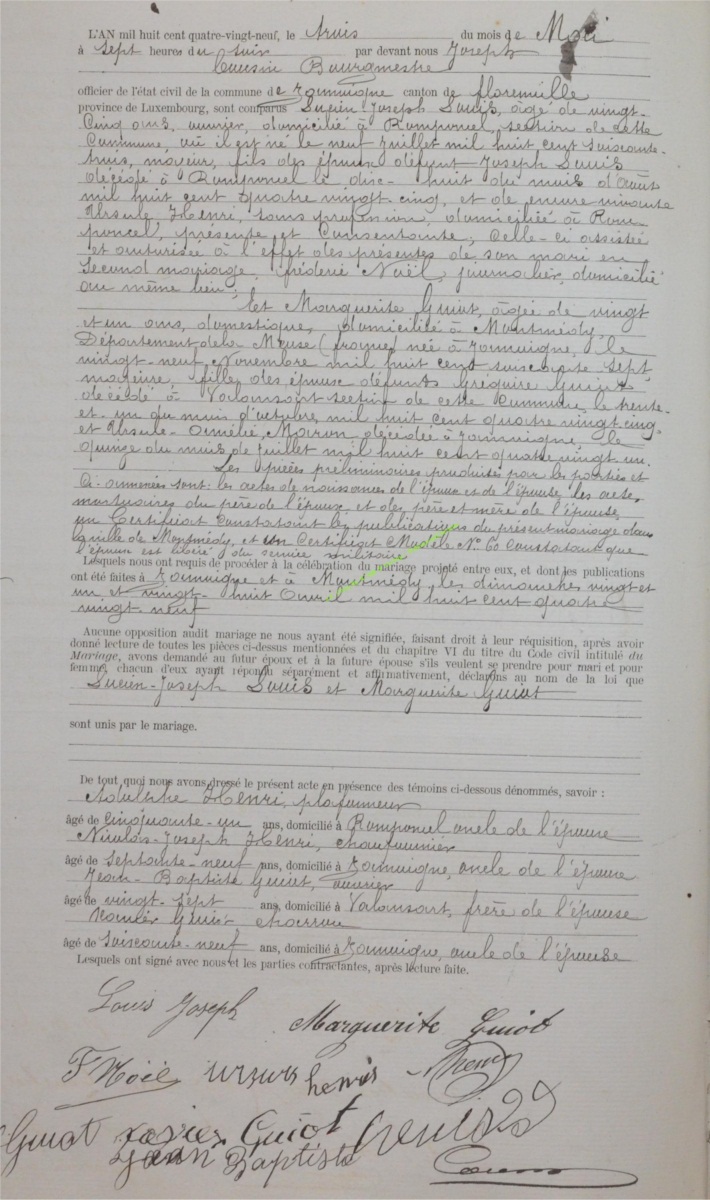 L'AN mil huit cent quatre-vingt-neuf, le trois du mois de Mai
à sept heures du soir par devant nous Joseph
Cousin Bourgmestre
officier de l'état civil de la commune de Jamoigne canton de Florenville
province de Luxembourg, sont comparus Lucien Joseph Louis, âgé de vingt-
Cinq ans, ouvrier, domicilié à Romponcel, section de cette
Commune, où il est né le neuf Juillet mil huit cent soixante-
trois, majeur, fils des époux défunt Joseph Louis
décédé à Romponcel le dix-huit du mois d'Août
mil huit cent quatre vingt-cinq, et de encore vivante
Ursule Henri, sans profession, domiciliée à Rom
poncel, présente et Consentante, Celle-ci assistée
et autorisée à l'effet des présentes de son mari en
Second mariage, Fréderic Noël, journalier, domicilié
au même lieu;
Et Marguerite Guiot, âgée de vingt
et un ans, domestique, domiciliée à Montmédy,
Département de la Meuse (France) née à Jamoigne, le
vingt-neuf Novembre mil huit cent soixante sept
majeure, fille des époux défunts Grégoire Guiot
décédé à Valansart section de cette Commune le trente-
et-un du mois d'octobre, mil huit cent quatre vingt-cinq
et Ursule-Amélie, Maron décédée à Jamoigne, le
quinze du mois de Juillet mil huit cent quatre vingt un.
Les pièces préliminaires produites par les parties et
Ci-annexées sont: les actes de naissances de l'époux et de l'épouse, les actes
mortuaires du père de l'époux, et des père et mère de l'épouse
un Certificat Constatant les publications du présent mariage dans
la ville de Montmédy, et un Certificat Modèle N° 60 Constatant que
l'époux est libéré du service militaire
Lesquels nous ont requis de procéder à la célébration du mariage projeté entre eux, et dont les publications
ont été faites à Jamoigne et à Montmédy, les dimanches vingt et
un et vingt-huit Avril mil huit cent quatre
vingt-neuf
Aucune opposition audit mariage ne nous ayant été signifiée, faisant droit à leur réquisition, après avoir
donné lecture de toutes les pièces ci-dessus mentionnées et du chapitre VI du titre du Code civil intitulé du
Mariage, avons demandé au futur époux et à la future épouse s'ils veulent se prendre pour mari et pour
femme, chacun d'eux ayant répondu séparément et affirmativement, déclarons au nom de la loi que
Lucien-Joseph Louis et Marguerite Guiot
sont unis par le mariage.
De tout quoi nous avons dressé le présent acte en présence des témoins ci-dessous dénommés, savoir :
Adolphe Henri, plafonneur
âgé de Cinquante-un ans, domicilié à Romponcel oncle de l'épouse
Nicolas-Joseph Henri, chaufournier
âgé de septante-neuf ans, domicilié à Jamoigne, oncle de l'épouse
Jean-Baptiste Guiot, ouvrier
âgé de vingt-sept ans, domicilié à Valansart, frère de l'épouse
Xavier Guiot charron
âgé de Soixante-neuf ans, domicilié à Jamoigne, oncle de l'épouse
Lesquels ont signé avec nous et les parties contractantes, après lecture faite.
Louis Joseph Marguerite Guiot
F Noël henri
Guiot xavier Guiot
Jean Baptiste Cousin